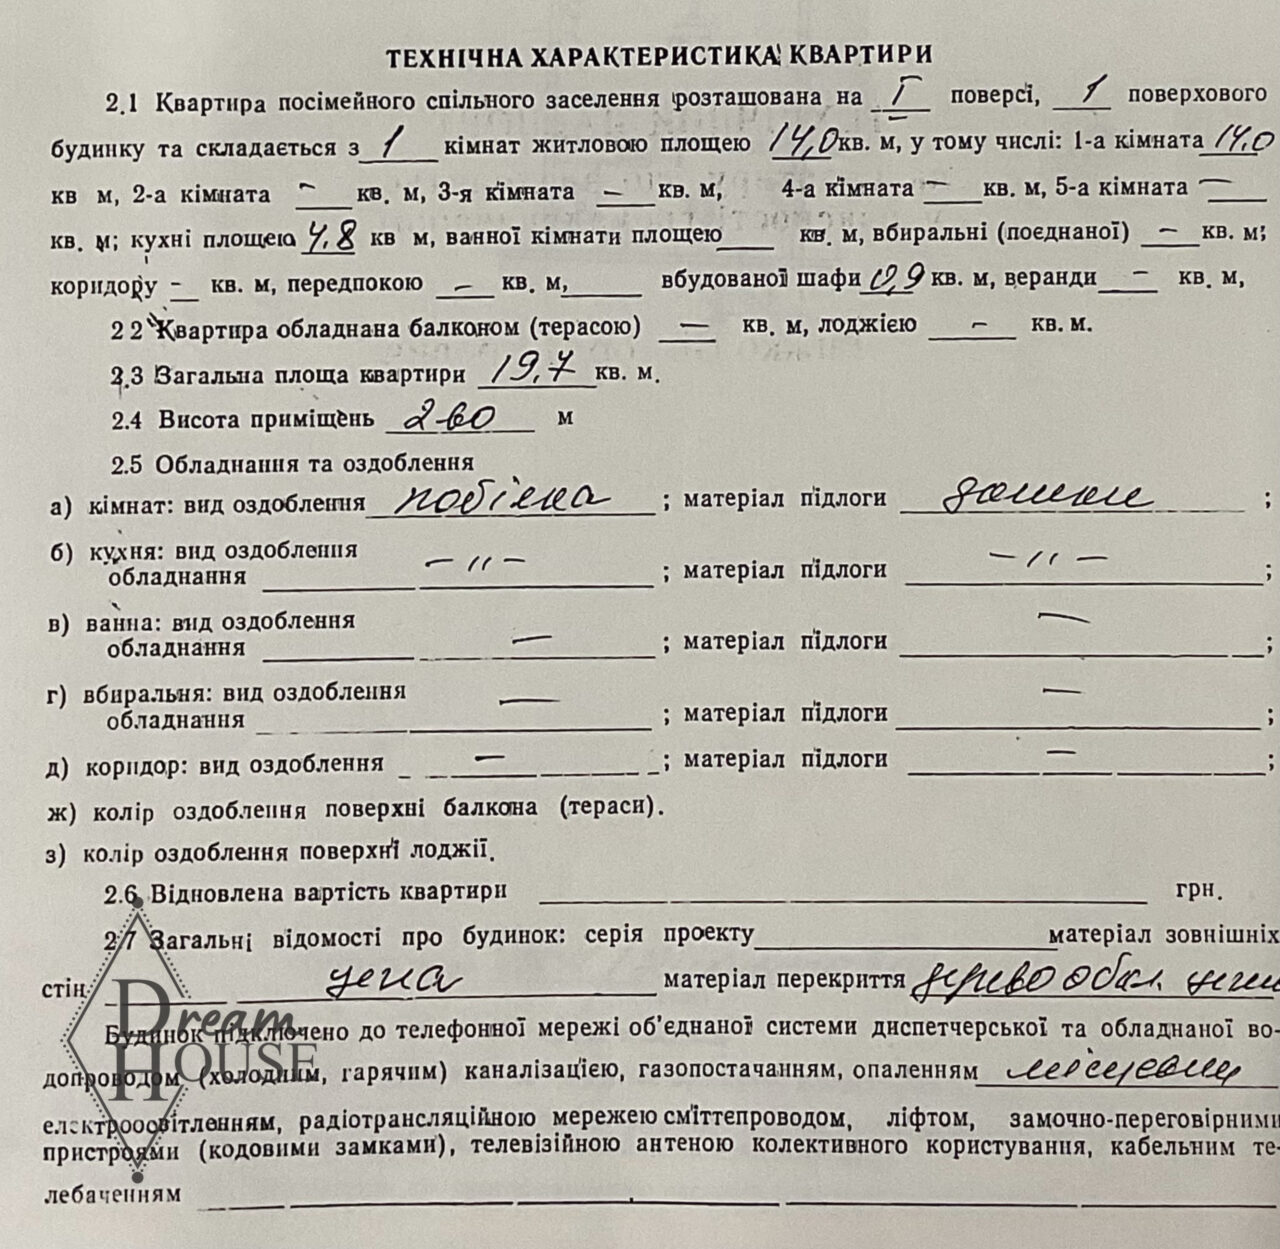 ТЕХНІЧНА ХАРАКТЕРИСТИКА КВАРТИРИ
2.1 Квартира посімейного спільного заселення розташована на I поверсі, 1 поверхового
будинку та складається з 1 кімнат житловою площею 14,0 кв. м, у тому числі: 1-а кімната 14,0
кв м, 2-а кімната — кв. м, 3-я кімната — кв. м, 4-а кімната — кв. м, 5-а кімната —
кв. м; кухні площею 4,8 кв м, ванної кімнати площею кв. м, вбиральні (поєднаної) — кв. м;
коридору — кв. м, передпокою — кв. м, вбудованої шафи 0,9 кв. м, веранди — кв. м,
2 2 Квартира обладнана балконом (терасою) — кв. м, лоджією — кв. м.
2.3 Загальна площа квартири 19,7 кв. м.
2.4 Висота приміщень 2-60 м
2.5 Обладнання та оздоблення
а) кімнат: вид оздоблення побілка ; матеріал підлоги дошки ;
б) кухня: вид оздоблення
обладнання — 〃 — ; матеріал підлоги — 〃 — ;
в) ванна: вид оздоблення
обладнання — ; матеріал підлоги — ;
г) вбиральня: вид оздоблення
обладнання — ; матеріал підлоги — ;
д) коридор: вид оздоблення — ; матеріал підлоги — ;
ж) колір оздоблення поверхні балкона (тераси).
з) колір оздоблення поверхні лоджії.
2.6 Відновлена вартість квартири грн.
2.7 Загальні відомості про будинок: серія проекту матеріал зовнішніх
стін цегла матеріал перекриття дерево обкл.
Будинок підключено до телефонної мережі об'єднаної системи диспетчерської та обладнаної во-
допроводом (холодним, гарячим) каналізацією, газопостачанням, опаленням місцевим
електроосвітленням, радіотрансляційною мережею сміттєпроводом, ліфтом, замочно-переговірними
пристроями (кодовими замками), телевізійною антеною колективного користування, кабельним те-
лебаченням
Dream
HOUSE